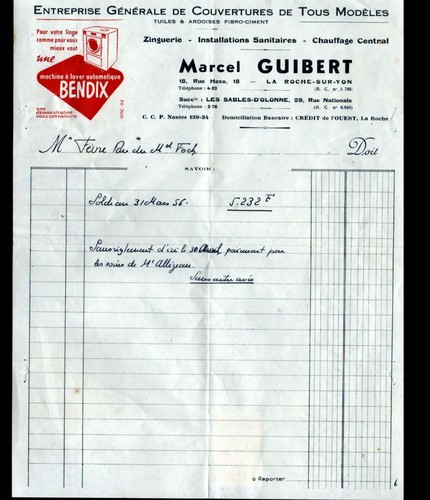 ENTREPRISE GÉNÉRALE DE COUVERTURES DE TOUS MODÈLES
TUILES & ARDOISES FIBRO-CIMENT
Pour votre linge
comme pour vous
mieux vaut
une
machine à laver automatique
BENDIX
une
démonstration
vous convaincra
Zinguerie - Installations Sanitaires - Chauffage Central
Marcel GUIBERT
18, Rue Haxo, 18 — LA ROCHE-SUR-YON
Téléphone : 4-02
Succle : LES SABLES-D'OLONNE, 29, Rue Nationale
Téléphone : 2-76
C. C. P. Nantes 139-54 Domiciliation Bancaire : CRÉDIT de l'OUEST, La Roche
Mr Fèvre Rue du Mal Foch Doit
SAVOIR :
Solde au 31 Mars 56. 5.232 F
Sans règlement d'ici le 30 Avril paiement par
les soins de Me
Sans autre avis
à Reporter